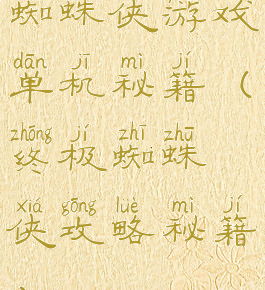 蜘蛛侠游戏
dān jī mì jí
单机秘籍(
zhōng jí zhī zhū
终极蜘蛛
xiá gōng lüè mì jí
侠攻略秘籍